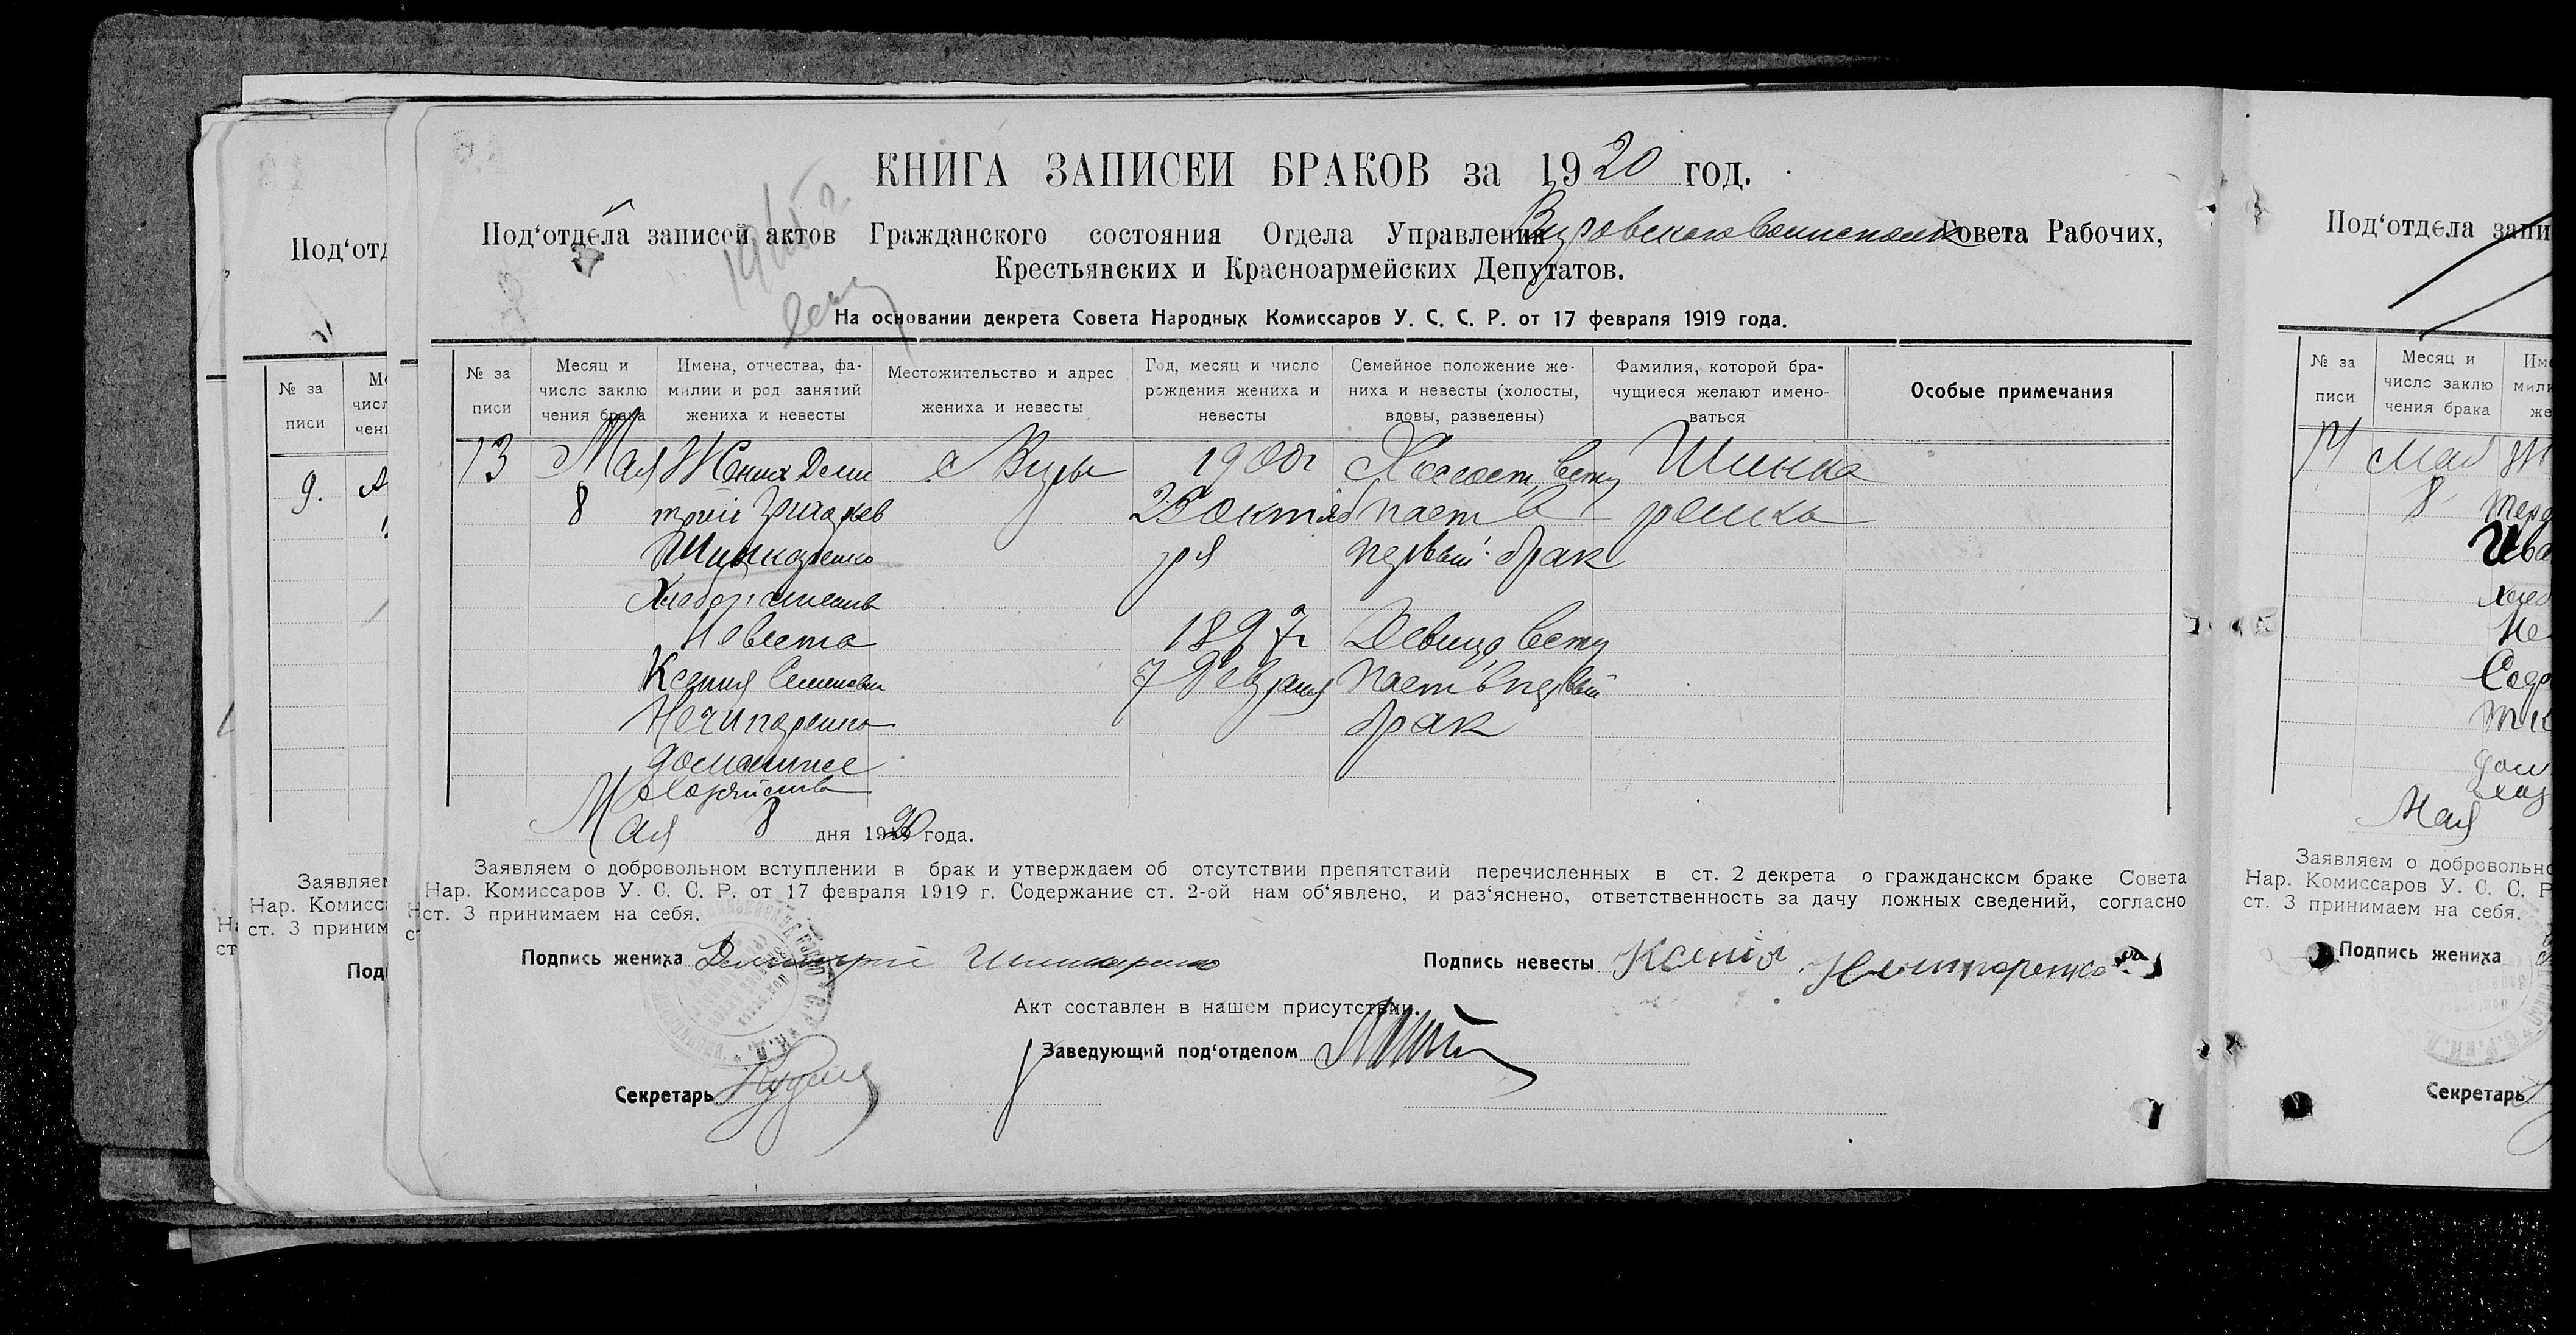 КНИГА ЗАПИСЕЙ БРАКОВ за 1920 год.
Под‘отдела записей актов Гражданского состояния Отдела Управления Совета Рабочих,
Крестьянских и Красноармейских Депутатов.
На основании декрета Совета Народных Комиссаров У. С. С. Р. от 17 февраля 1919 года.
№ за писи
Месяц и число заклю чения брака
Имена, отчества, фа- милии и род занятий жениха и невесты
Местожительство и адрес жениха и невесты
Год, месяц и число рождения жениха и невесты
Семейное положение же- ниха и невесты (холосты, вдовы, разведены)
Фамилия, которой бра- чущиеся желают имено- ваться
Особые примечания
13 Мая Жених Дми 1900г Холост, всту Шинка
8 трий 25 октяб пает в ренко
Шинкаренко ря первый брак
Невеста 1897г Девица всту
Ксения Семеновна 7 Февраля пает в первый
Нечипоренко брак
домашнее
хозяйство
Мая 8 дня 1920 года.
Заявляем о добровольном вступлении в брак и утверждаем об отсутствии препятствий перечисленных в ст. 2 декрета о гражданском браке Совета
Нар. Комиссаров У. С. С. Р. от 17 февраля 1919 г. Содержание ст. 2-ой нам об‘явлено, и раз‘яснено, ответственность за дачу ложных сведений, согласно
ст. 3 принимаем на себя.
Подпись жениха Димитрий Шинкаренко Подпись невесты Ксенія Нечипоренкова
Акт составлен в нашем присутствии.
Заведующий под‘отделом
Секретарь
Под‘отд
№ за писи
9.
Заявляем
Нар. Комисс
ст. 3 приним
Под‘отдела запи
№ за писи
Месяц и число заклю чения брака
14 Мая
8
Мая
Заявляем о добровольно
Нар. Комиссаров У. С. С. Р
ст. 3 принимаем на себя.
Подпись жениха
Секретарь